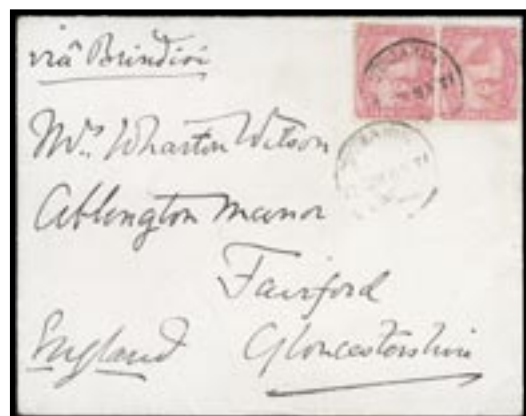 viâ Brindisi
Mrs. Wharton Wilson
Ablington Manor
Fairford
England Gloucestershire